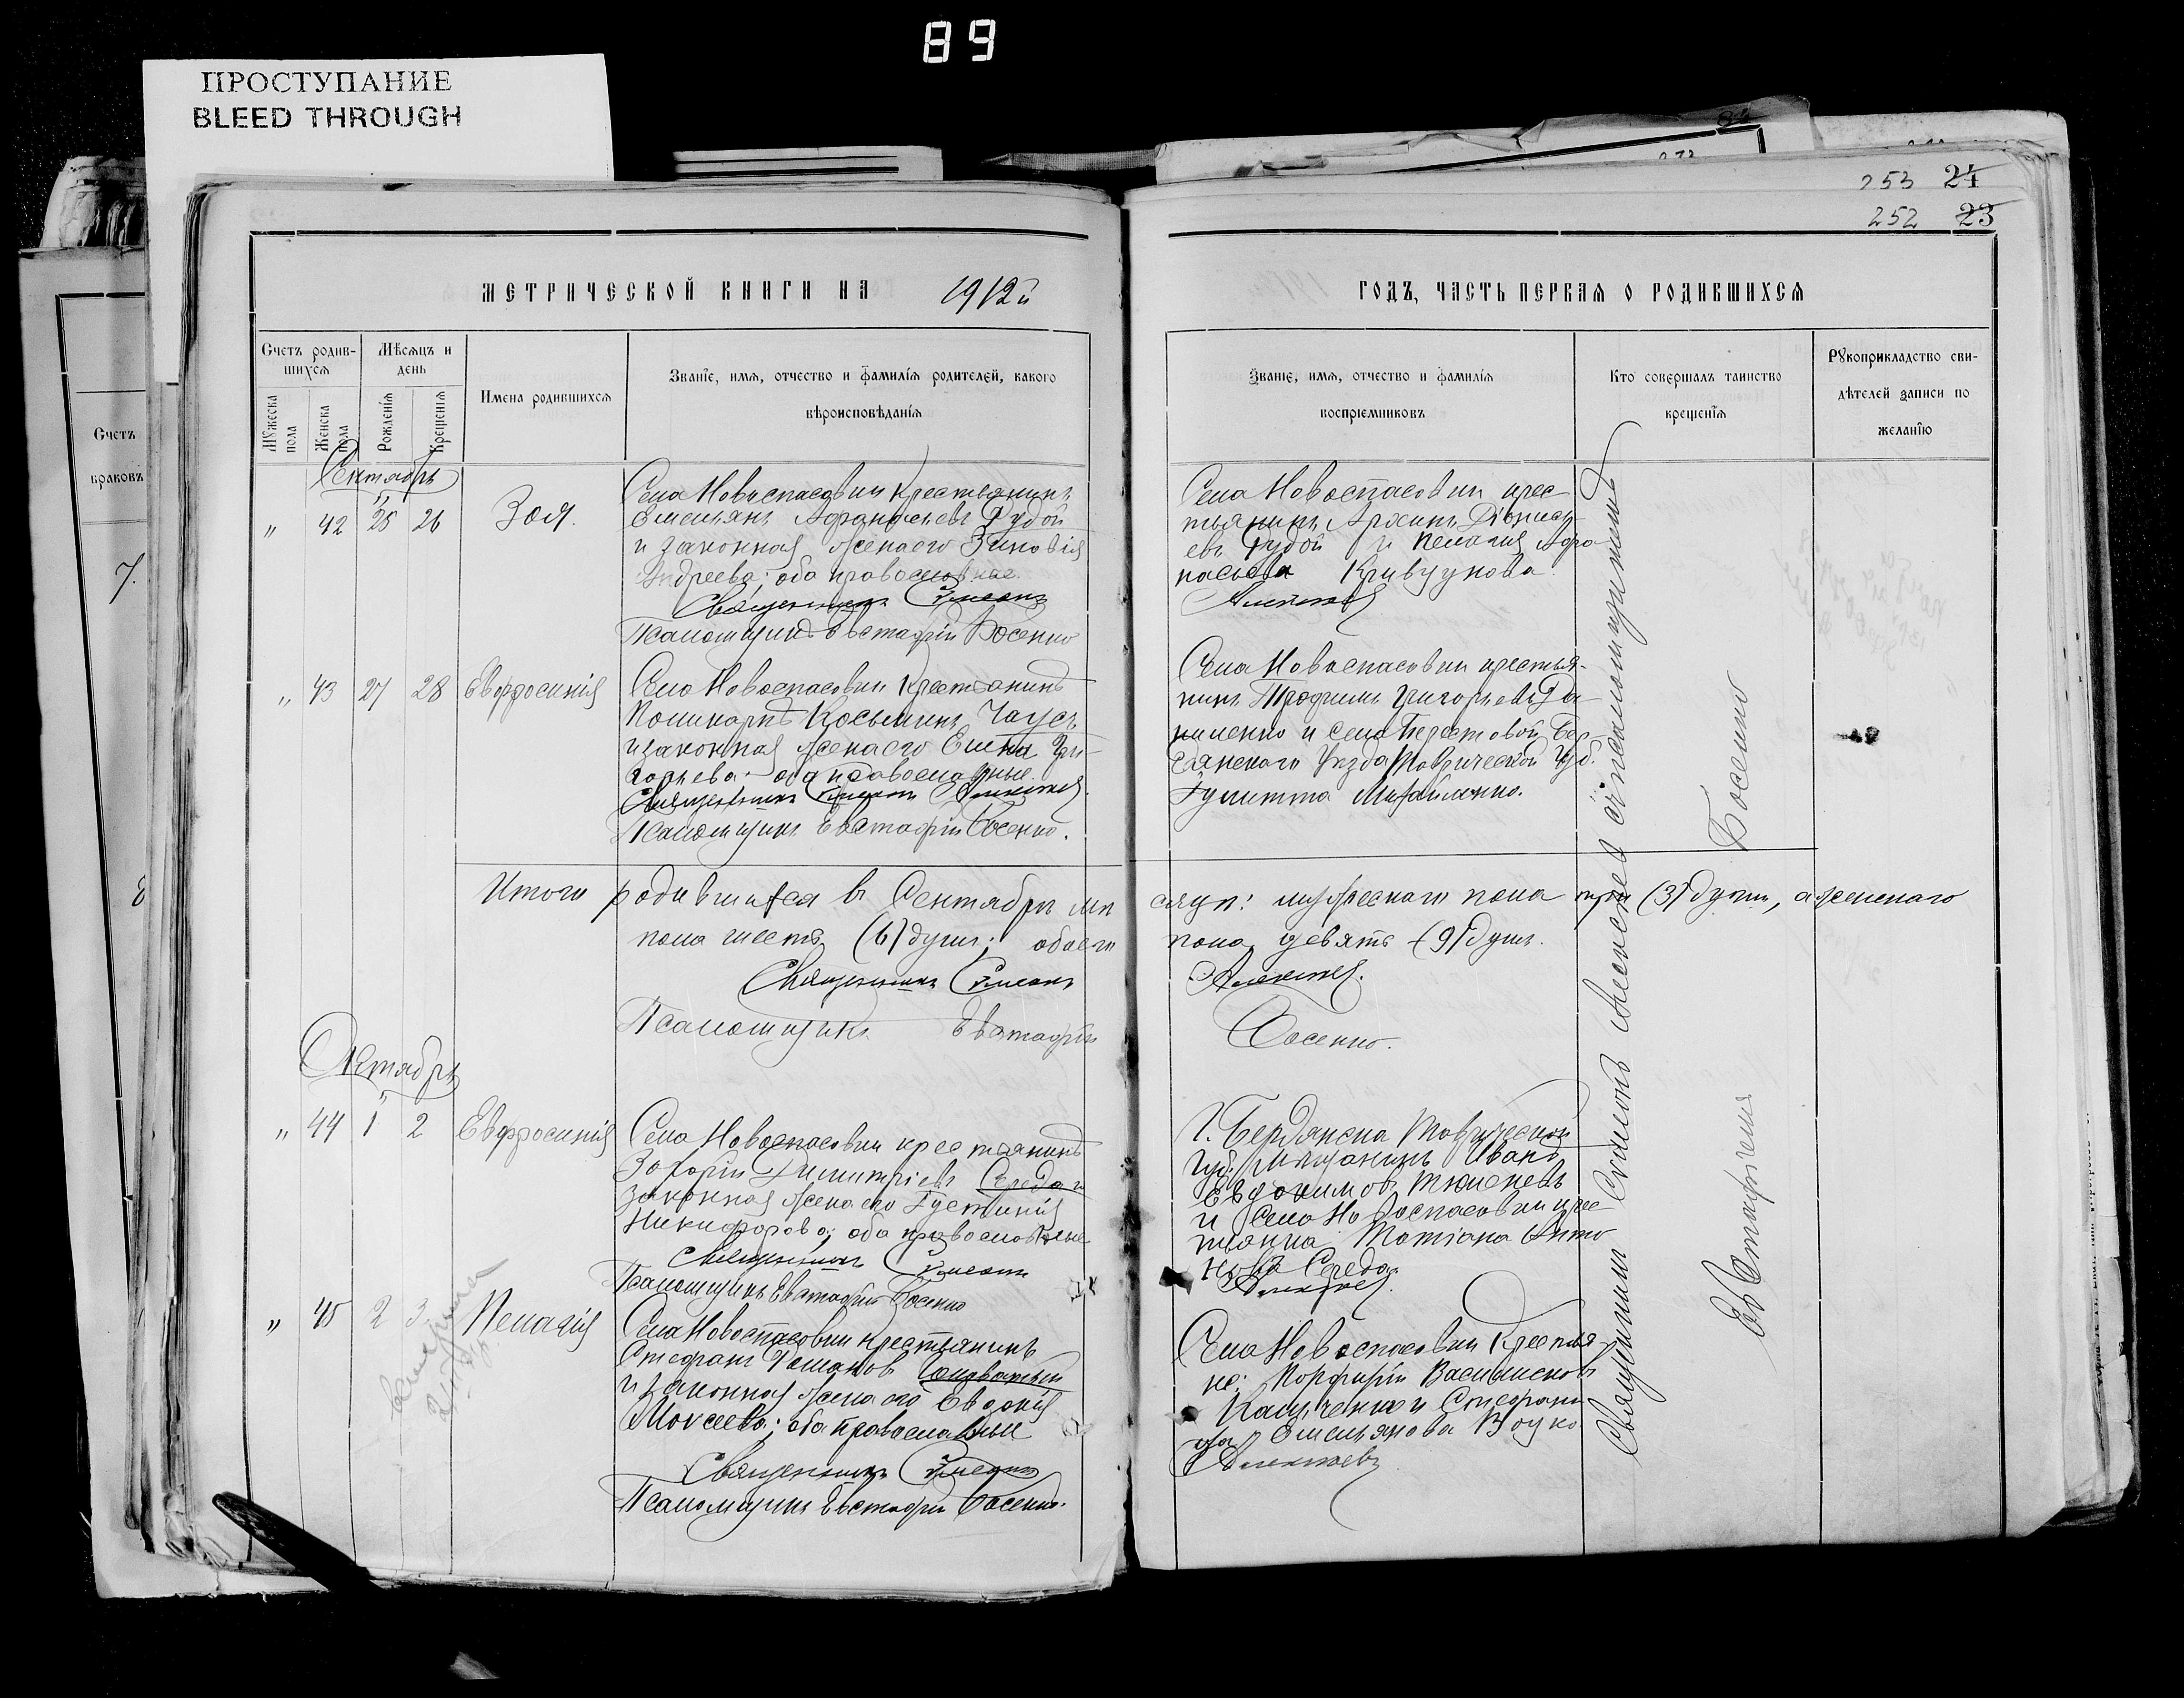 89
ПРОСТУПАНИЕ
BLEED THROUGH
253 24
252 23
МЕТРИЧЕСКОЙ КНИГИ НА 1912й
ГОДЪ, ЧАСТЬ ПЕРВАЯ О РОДИВШИХСЯ
Счетъ родив-
шихся
Мужеска пола
Женска пола
Мѣсяцъ и
день
Рожденія
Крещенія
Имена родившихся
Званіе, имя, отчество и фамилія родителей, какого
вѣроисповѣданія
Званіе, имя, отчество и фамилія
воспріемниковъ
Кто совершалъ таинство
крещенія
Рукоприкладство сви-
дѣтелей записи по
желанію
Счетъ
браковъ
7.
8
Сентябрь
" 42 25 26 Зоя.
Села Новоспасовки крестьянинъ
Емельянъ Афанасьевъ Рудой
и законная жена его Зиновія
Андреева; оба православные.
Священникъ Симеонъ
Псаломщикъ Евстафій Босенко
Села Новоспасовки крес-
тьянинъ Архипъ Діонись-
евъ Рудой и Пелагія Афа-
насьева Кривцунова.
Алексѣев
" 43 27 28 Евфросинія
Села Новоспасовки крестьянинъ
Поликарпъ Косьминъ Чаусъ
и законная жена его Елена Гри-
горьева; оба православные.
Священникъ Симеонъ Алексѣев
Псаломщикъ Евстафій Босенко.
Села Новоспасовки крестья-
нинъ Трофимъ Григорьевъ
и села Берестовой Бер-
дянскаго Уѣзда Таврической Губ.
Гулитта Михайленко.
Итого родившихся въ Сентябрѣ мѣ
сяцѣ: мужескаго пола три (3) души, а женскаго
пола шесть (6) душъ; обоего
пола девять (9) душъ.
Священникъ Симеонъ
Алексѣев.
Псаломщикъ Евстафій
Босенко.
Октябрь
" 44 1 2 Евфросинія
Села Новоспасовки крестьянинъ
Захарій Димитріевъ Середа и
законная жена его Густинія
Никифорова; оба православные
Священникъ Симеонъ
Псаломщикъ Евстафій Босенко
Г. Бердянска Таврической
Губ. мѣщанинъ Иванъ
Евдокимовъ Тюменевъ
и села Новоспасовки крес
тьянка Татіана Анто
нова Середа.
Алексѣев.
" 45 2 3 Пелагія
Села Новоспасовки крестьянинъ
Стефанъ Романовъ
и законная жена его Евдокія
Моисеева; оба православные
Священникъ Симеонъ
Псаломщикъ Евстафій Босенко.
Села Новоспасовки Крестья-
не: Порфирій Васильевъ
и Стефани
да Емельянова Воцко
Алексѣевъ
Священникъ Симеонъ Алексѣев и псаломщикъ
Евстафій Босенко